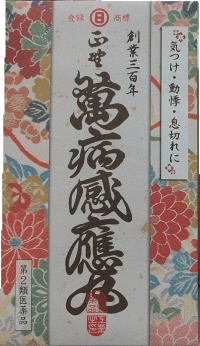 登録 商標
日
気つけ・動悸・息切れに
創業三百年
正野
萬病感應丸
第2類医薬品